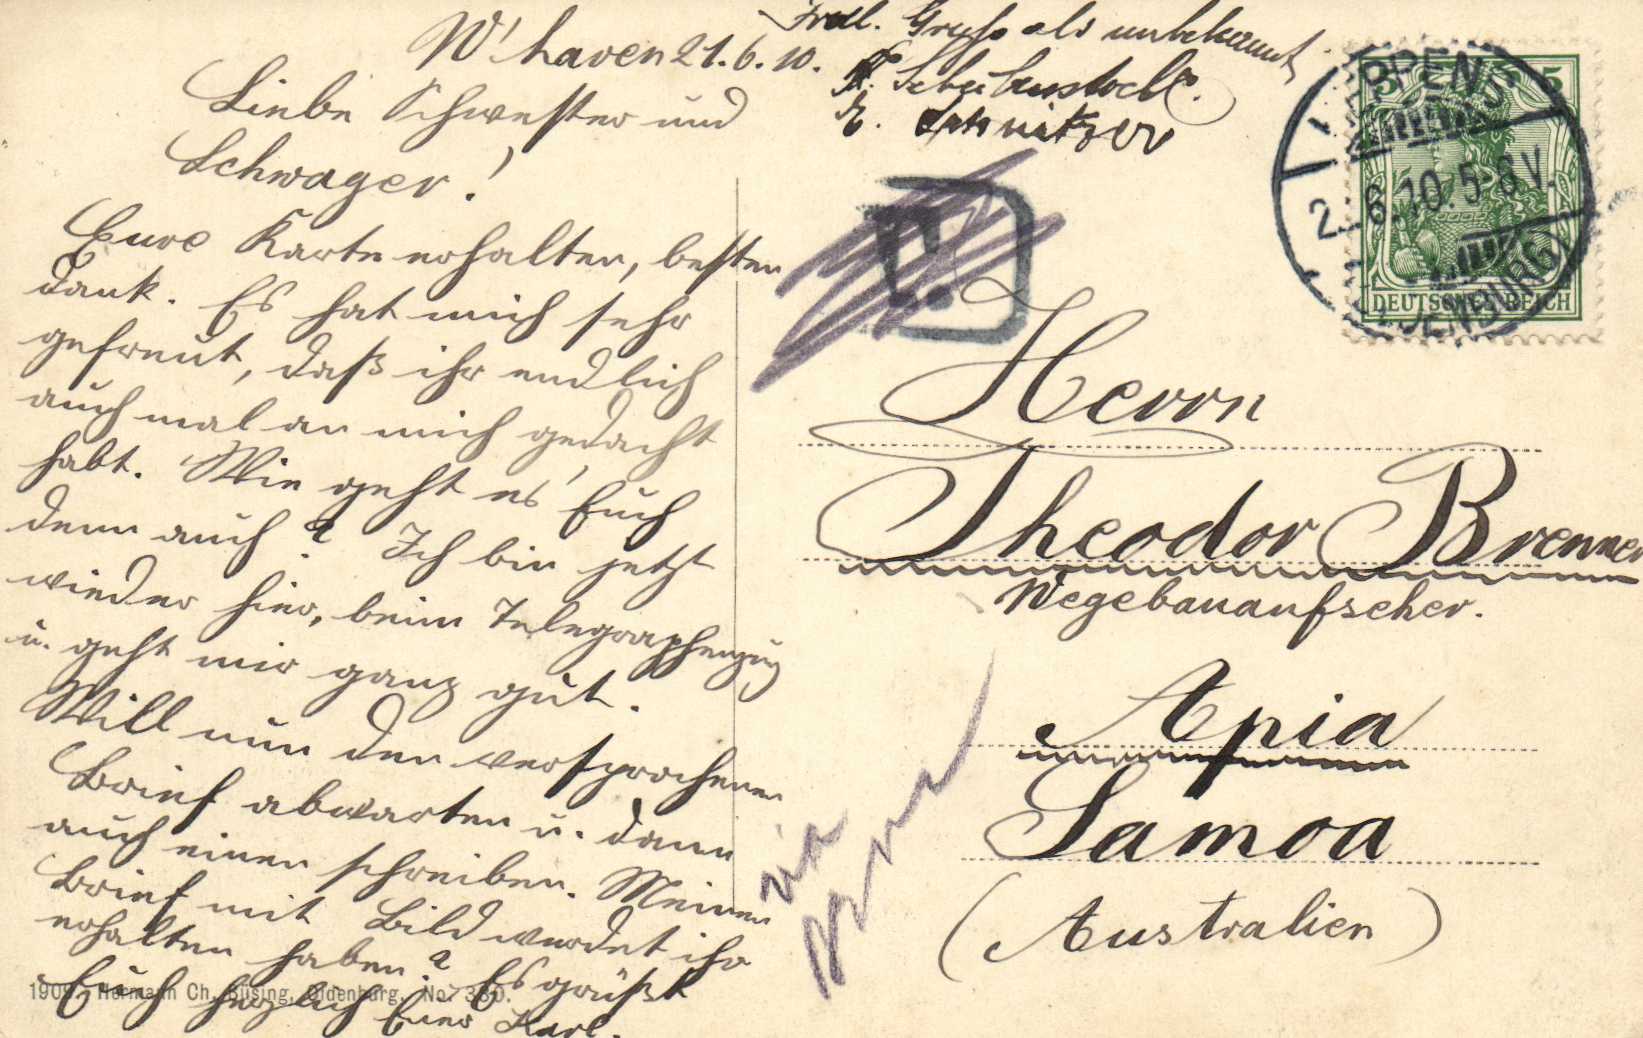 W'haven 21.6.10.
Liebe Schwester und
Schwager!
Eure Karte erhalten, besten
Dank. Es hat mich sehr
gefreut, daß ihr endlich
auch mal an mich gedacht
habt. Wie geht es Euch
denn auch? Ich bin jetzt
wieder hier, beim Telegraphenzug
u. geht mir ganz gut.
Will nun den versprochenen
Brief abwarten u. dann
auch einen schreiben. Meinen
Brief mit Bild werdet ihr
erhalten haben? Es grüßt
Euch herzlich Euer Karl.
Frdl. Gruß als unbekannt
E.
1909, Hermann Ch. Büsing, Oldenburg, No.
5 5
DEUTSCHES REICH
EPPENS
OLDENBURG
6.10.5-6V.
Herrn
Theodor Brenner
Wegebauaufseher.
Apia
Samoa
(Australien)
via